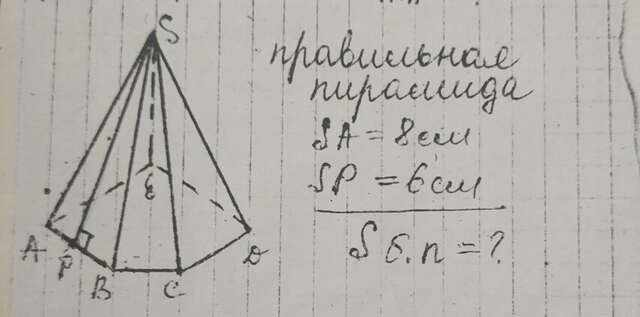 S
A
P
B
C
D
E
правильная
пирамида
SA = 8см
SP = 6см
S б.п = ?